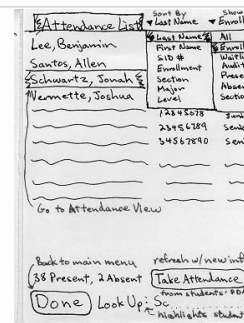 Attendance List
Sort By
Last Name
Show
Enroll
Lee, Benjamin
Santos, Allen
Schwartz, Jonah
Vermette, Joshua
Last Name
First Name
SID #
Enrollment
Section
Major
Level
All
Enroll
Waitli
Audit
Prese
Absen
Sectio
12345678
Juni
23456789
Seni
34567890
Seni
Go to Attendance View
Back to main menu
refresh w/ new inf
38 Present, 2 Absent
Take Attendance
from students' PDA
Done
Look Up: Sc
highlights student